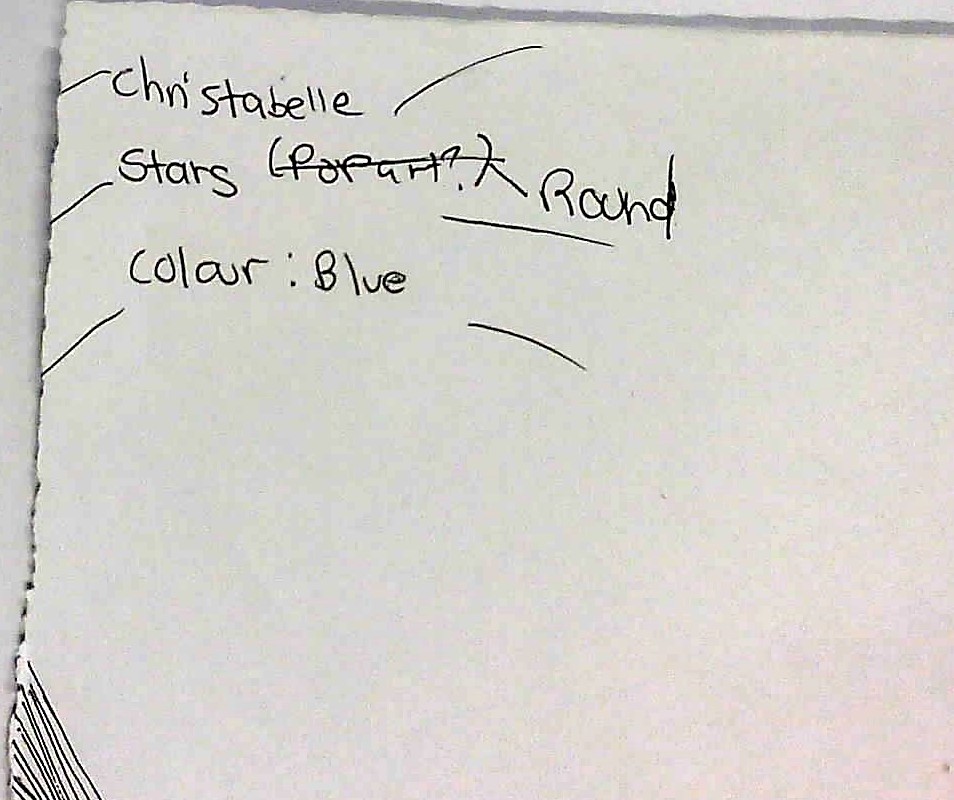 Christabelle
Stars (Popart?) Round
Colour : Blue